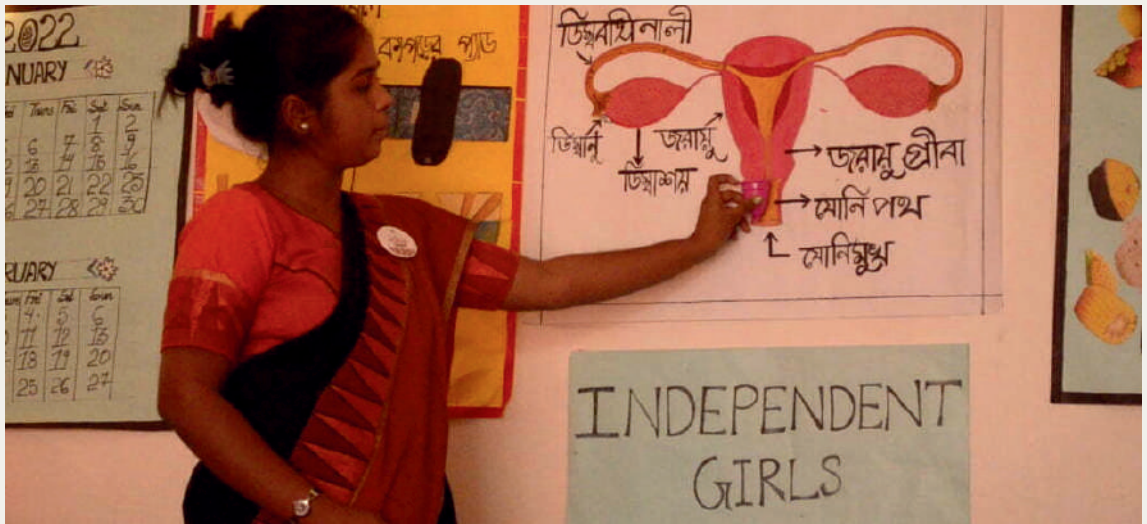 2022
NUARY
Thurs Fri Sat Sun
1 2
6 7 8 9
13 14 15 16
20 21 22 23
27 28 29 30
RUARY
Fri Sat Sun
4 5 6
11 12 13
18 19 20
25 26 27
কাপড়ের প্যাড
ডিম্ববাহিনালী
ডিম্বানু
ডিম্বাশয়
জরায়ু
জরায়ু গ্রীবা
যোনি পথ
যোনিমুখ
INDEPENDENT
GIRLS